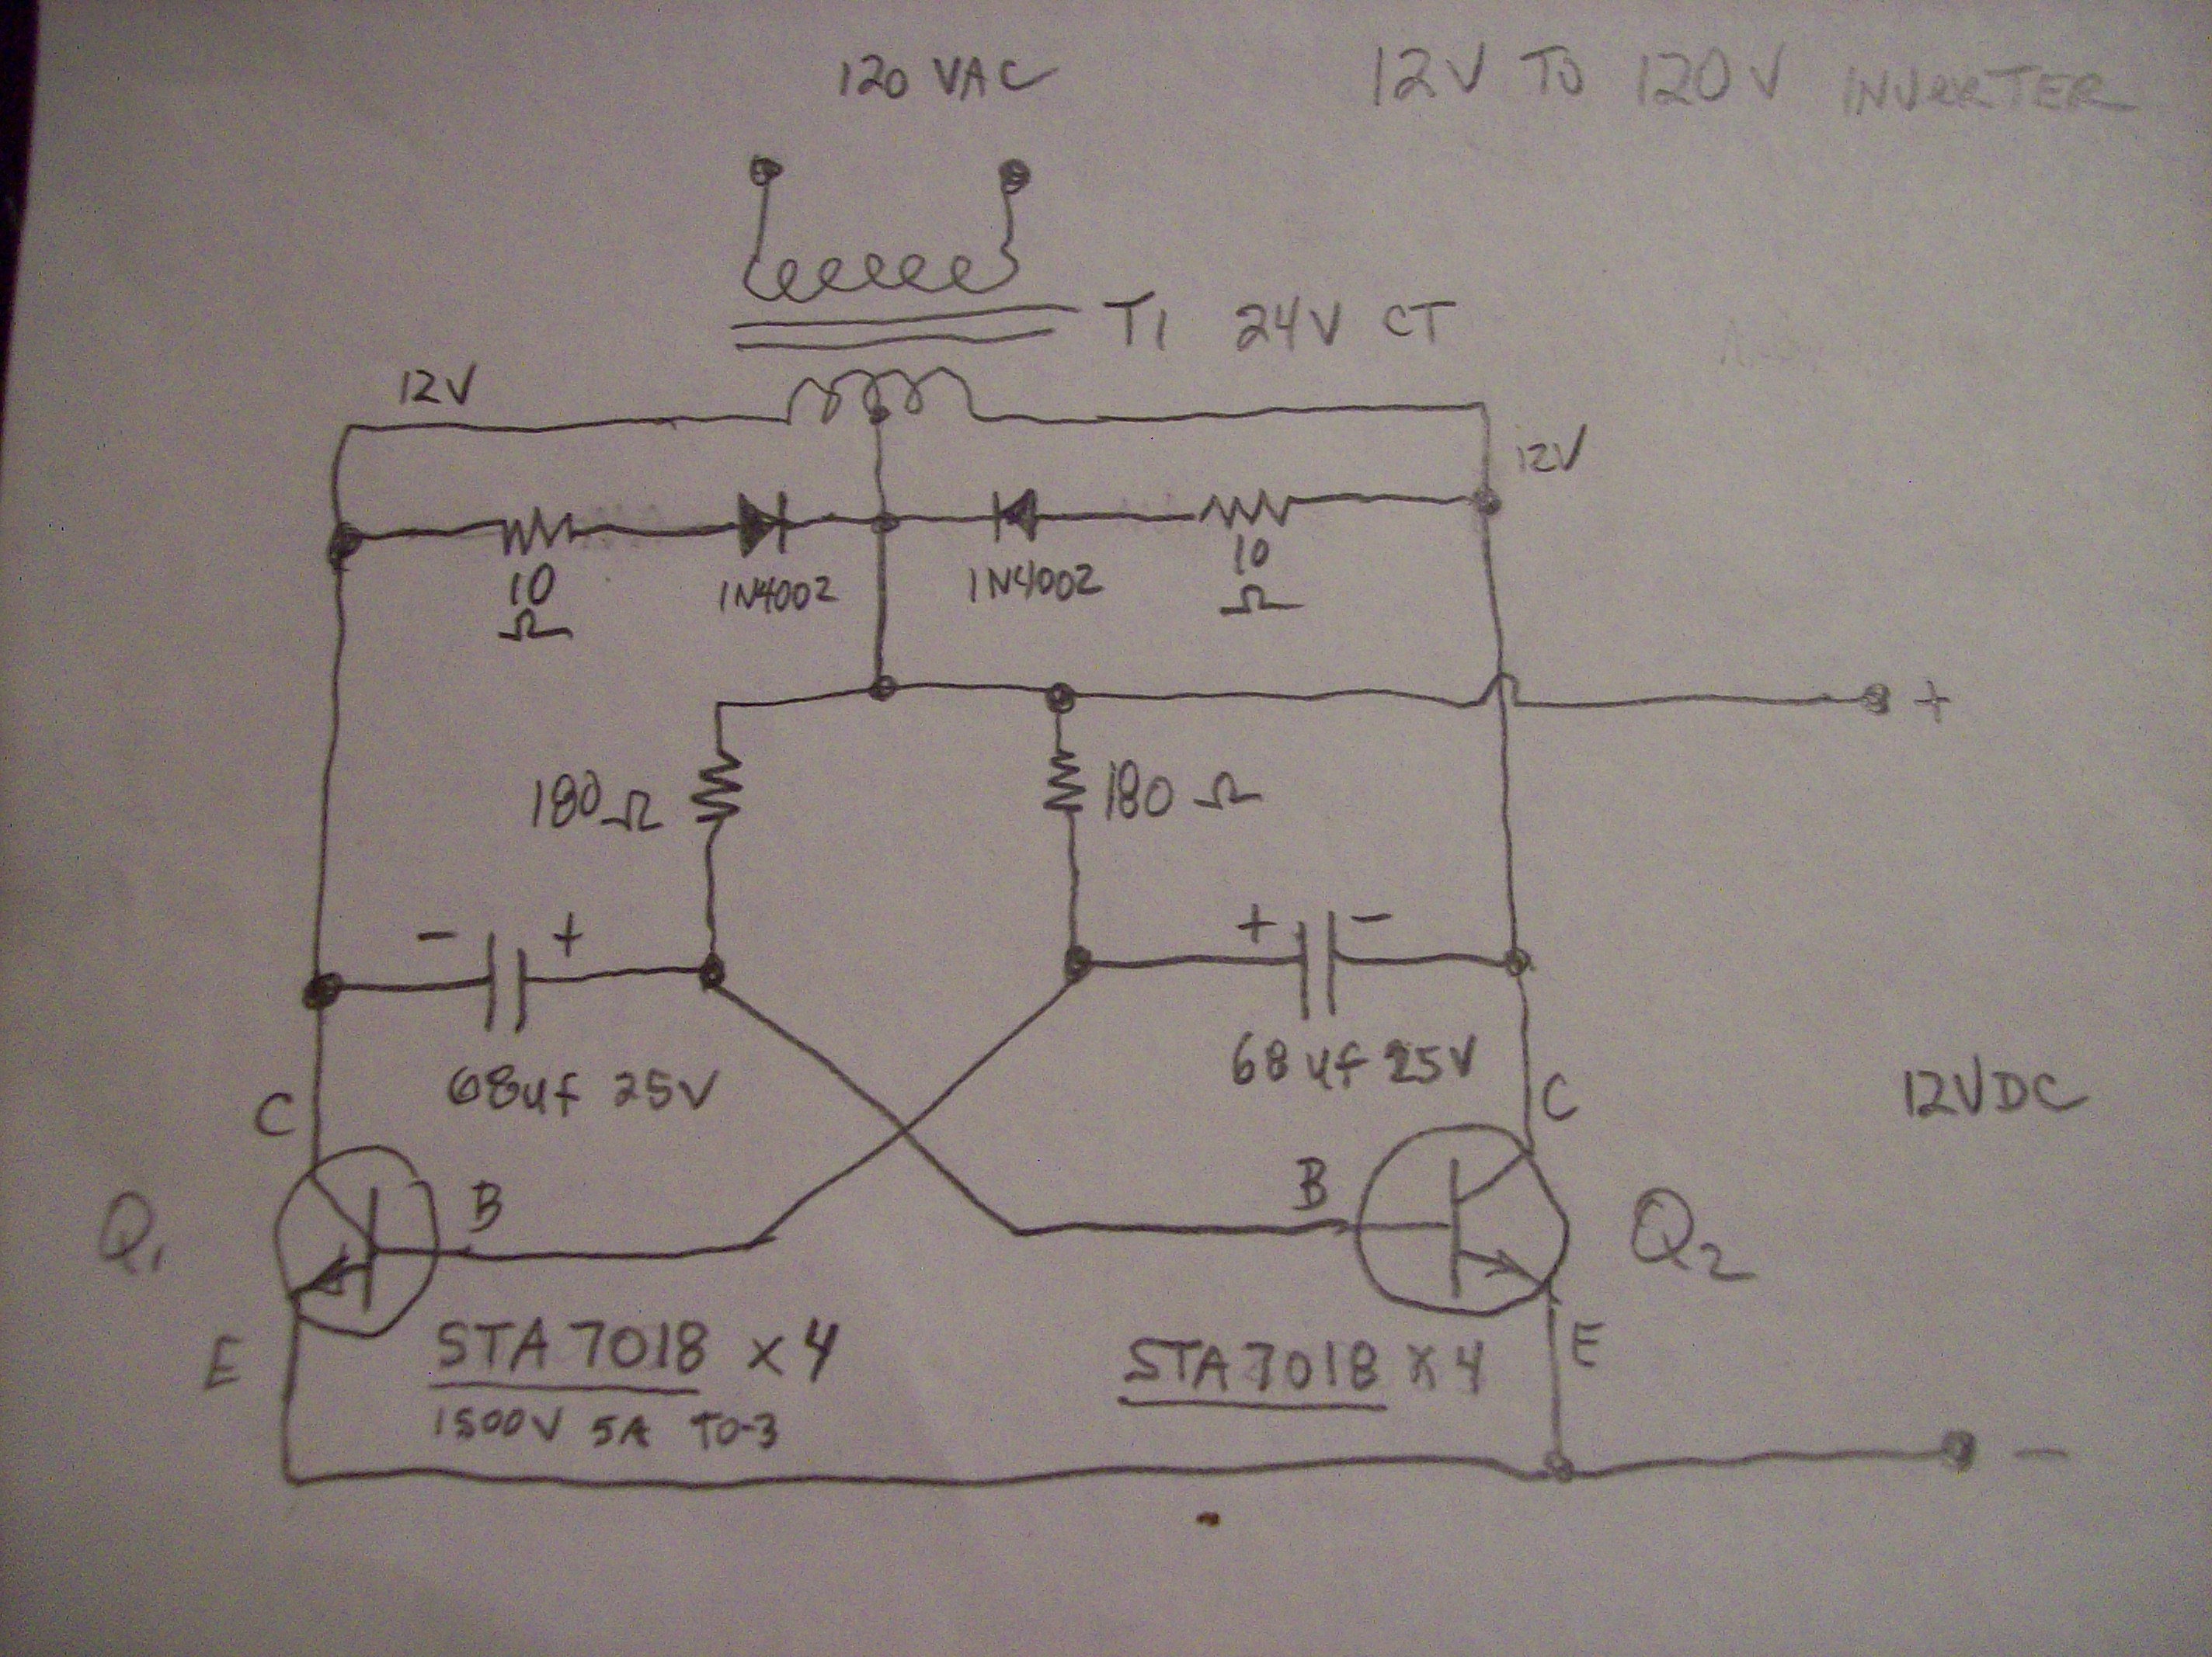 120 VAC
12V TO 120V INVERTER
T1 24V CT
12V
12V
10
Ω
1N4002
1N4002
10
Ω
+
180Ω
180 Ω
- +
+ -
68uf 25V
68uf 25V
12VDC
C
C
Q1
B
B
Q2
E
STA 7018 x 4
1500V 5A TO-3
STA7018 x 4
E
-